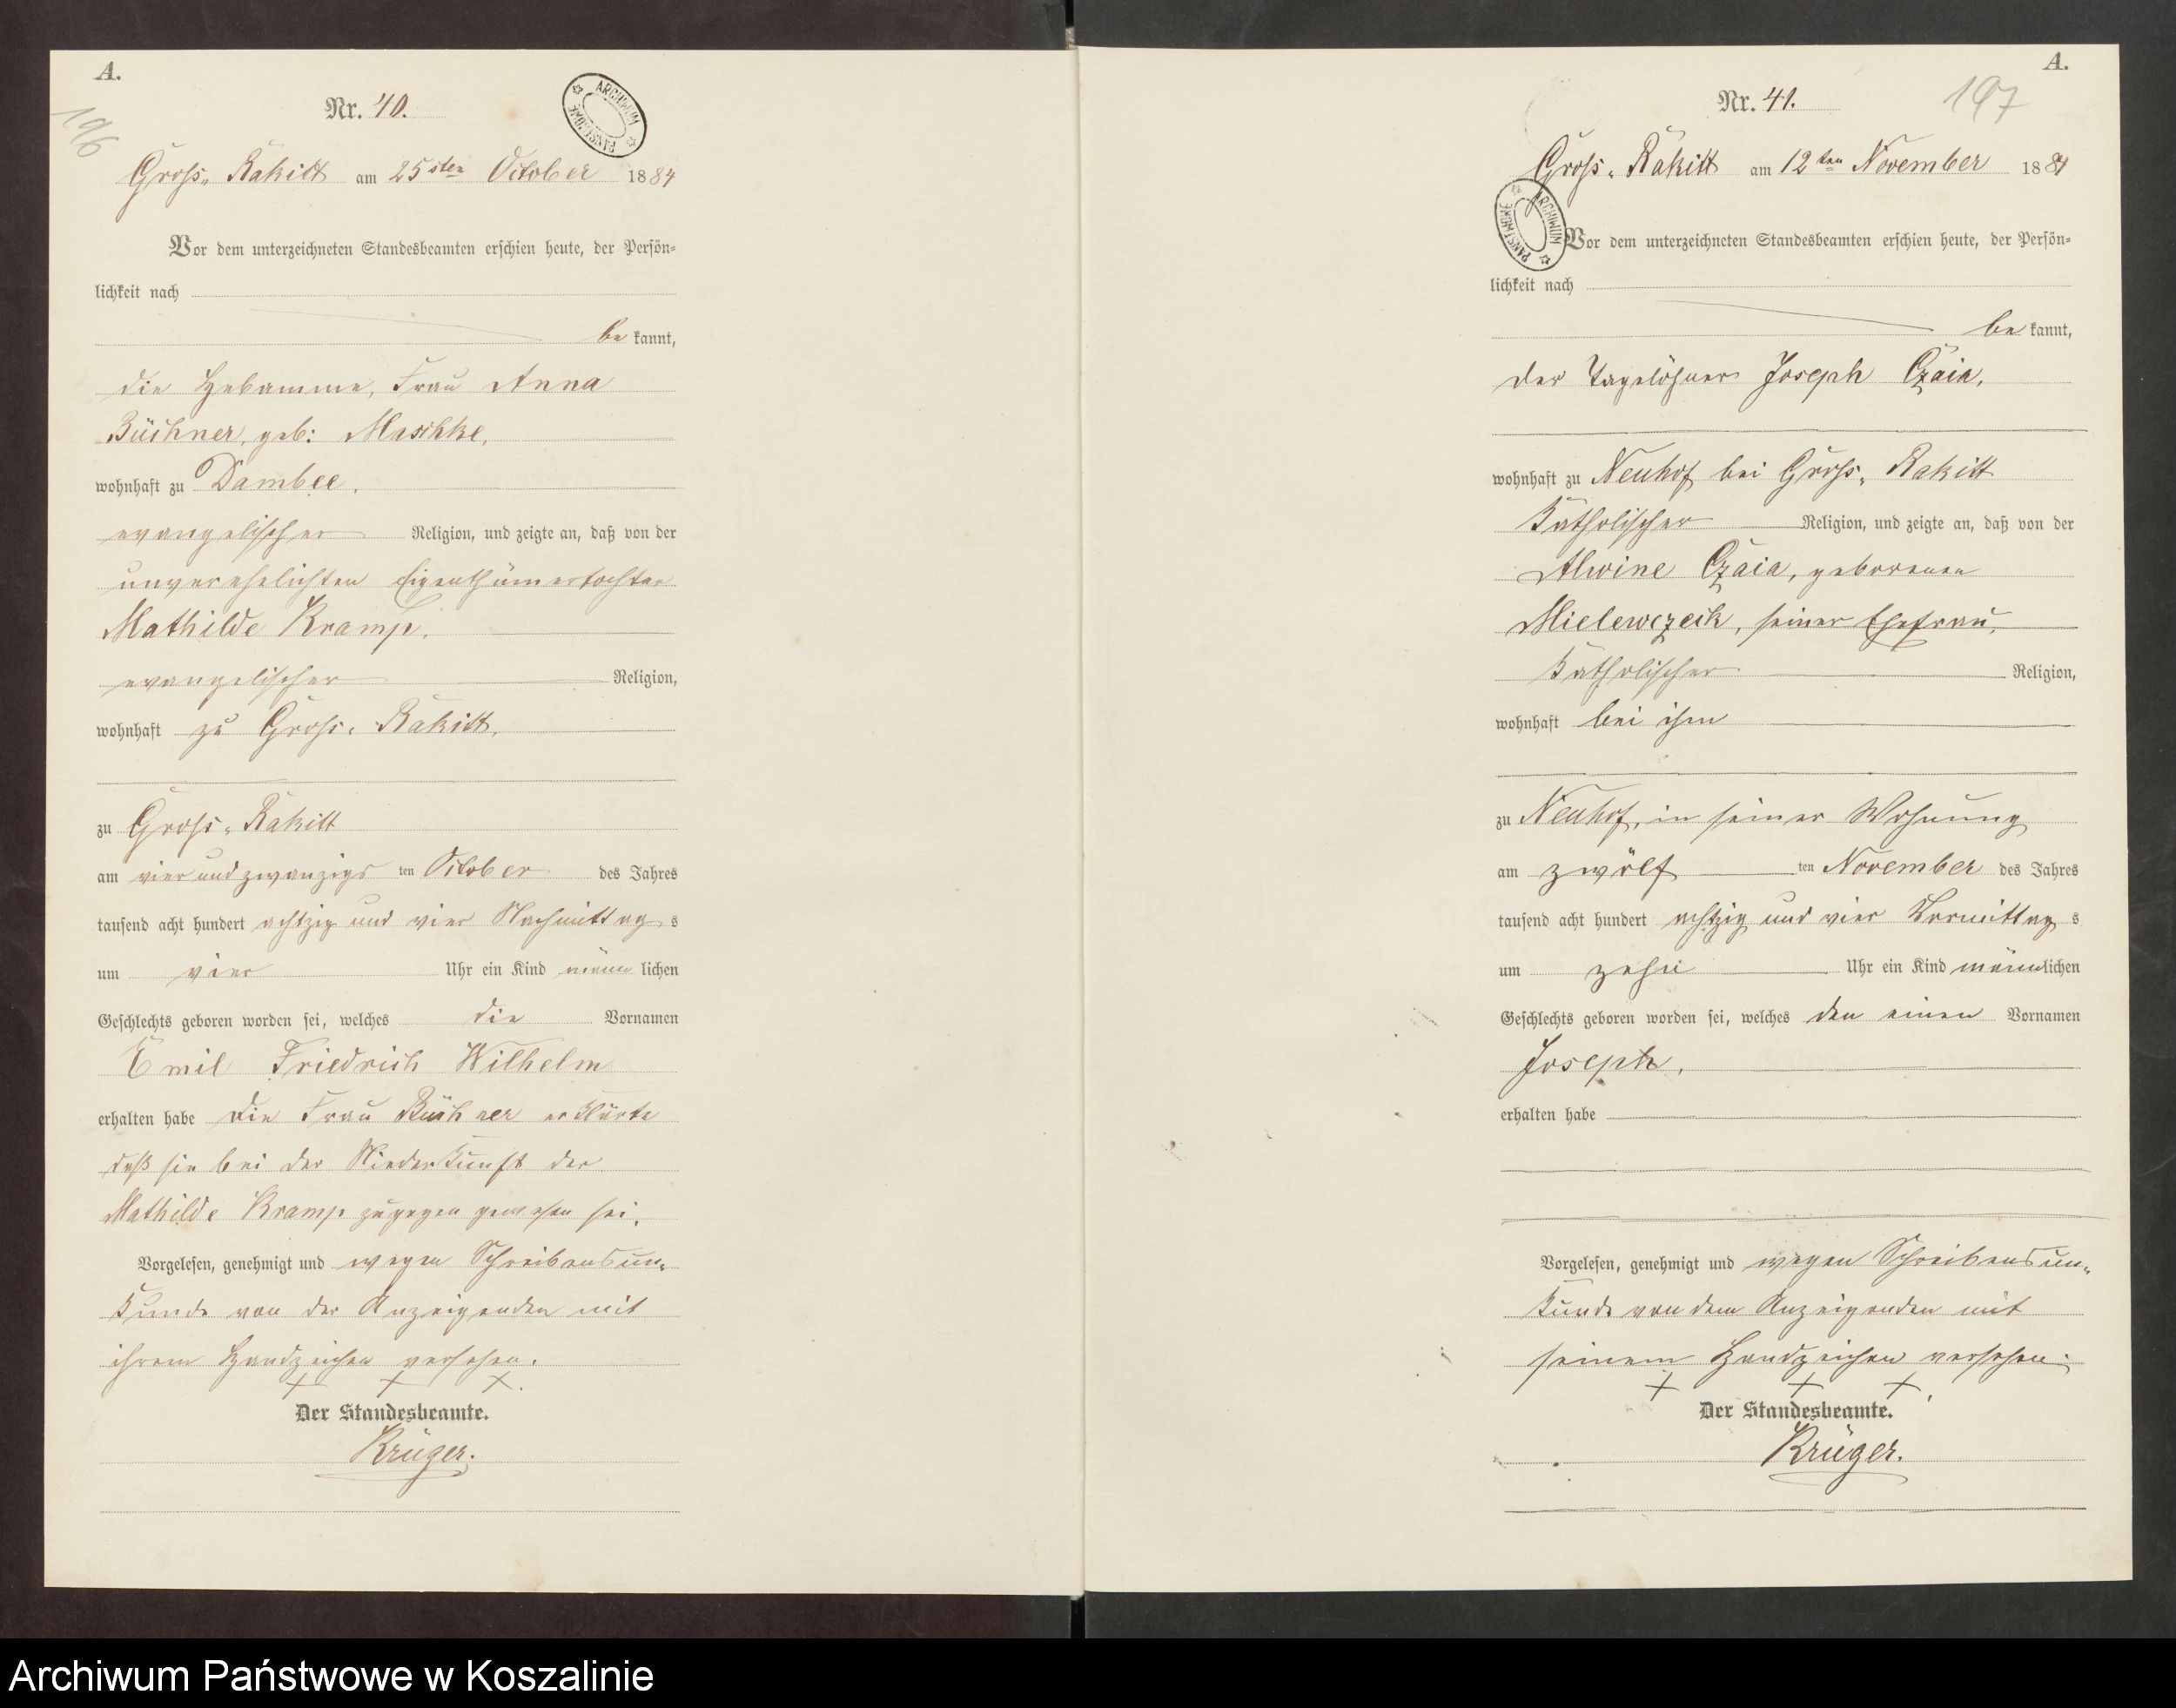 A.
196
Nr. 40.
ARCHIWUM PAŃSTWOWE
Gross-Rakitt am 25sten October 1884
Vor dem unterzeichneten Standesbeamten erschien heute, der Persön-
lichkeit nach
be kannt,
die Hebamme, Frau Anna
Büchner, geb: Maschke,
wohnhaft zu Dambee,
evangelischer Religion, und zeigte an, daß von der
unverehelichten Eigenthümertochter
Mathilde Kramp,
evangelischer Religion,
wohnhaft zu Gross-Rakitt,
zu Gross-Rakitt
am vier und zwanzigs ten October des Jahres
tausend acht hundert achtzig und vier Nachmittag s
um vier Uhr ein Kind männ lichen
Geschlechts geboren worden sei, welches die Vornamen
Emil Friedrich Wilhelm
erhalten habe die Frau Büchner erklärte
daß sie bei der Niederkunft der
Mathilde Kramp zugegen gewesen sei.
Vorgelesen, genehmigt und wegen Schreibensun-
kunde von der Anzeigenden mit
ihrem Handzeichen versehen.
+ + +.
Der Standesbeamte.
Krüger.
A.
197
Nr. 41.
Gross-Rakitt am 12ten November 1884
ARCHIWUM PAŃSTWOWE
Vor dem unterzeichneten Standesbeamten erschien heute, der Persön-
lichkeit nach
be kannt,
der Tagelöhner Joseph Czaia,
wohnhaft zu Neuhof bei Gross-Rakitt
katholischer Religion, und zeigte an, daß von der
Alwine Czaia, geborenen
Mielewczeck, seiner Ehefrau,
katholischer Religion,
wohnhaft bei ihm
zu Neuhof, in seiner Wohnung
am zwölf ten November des Jahres
tausend acht hundert achtzig und vier Vormittag s
um zehn Uhr ein Kind männlichen
Geschlechts geboren worden sei, welches den einen Vornamen
Joseph,
erhalten habe
Vorgelesen, genehmigt und wegen Schreibensun-
kunde von dem Anzeigenden mit
seinem Handzeichen versehen.
+ + +.
Der Standesbeamte.
Krüger.
Archiwum Państwowe w Koszalinie